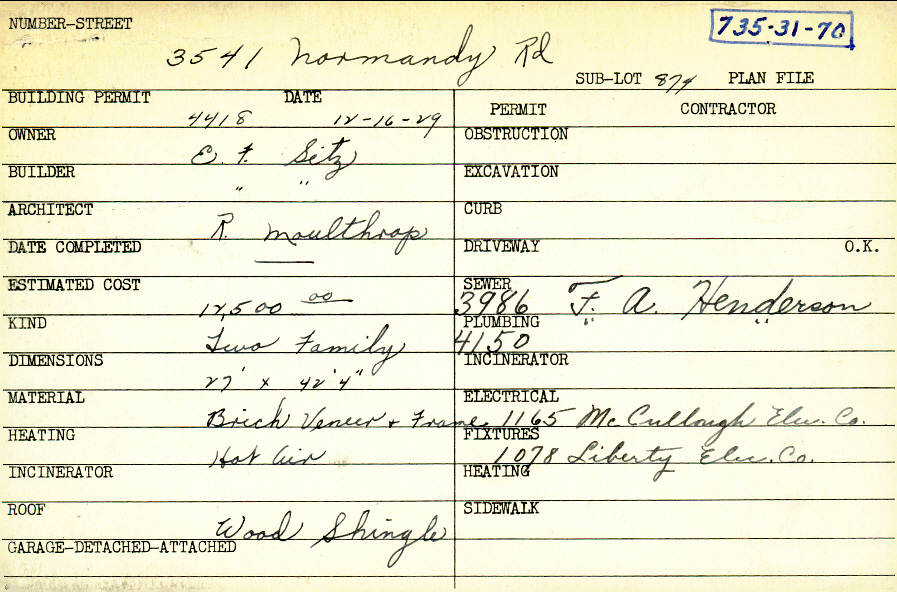 NUMBER-STREET
735-31-70
3541 Normandy Rd
SUB-LOT 874 PLAN FILE
BUILDING PERMIT DATE
4418 12-16-29
OWNER
E. F. Seitz
BUILDER
" "
ARCHITECT
R. Moulthrop
DATE COMPLETED
ESTIMATED COST
12,500 00
KIND
Two Family
DIMENSIONS
27' x 42'4"
MATERIAL
Brick Veneer + Frame
HEATING
Hot Air
INCINERATOR
ROOF
Wood Shingle
GARAGE-DETACHED-ATTACHED
PERMIT CONTRACTOR
OBSTRUCTION
EXCAVATION
CURB
DRIVEWAY O.K.
SEWER
3986 F. A. Henderson
PLUMBING " "
4150
INCINERATOR
ELECTRICAL
1165 McCullough Elec. Co.
FIXTURES
1078 Liberty Elec. Co.
HEATING
SIDEWALK